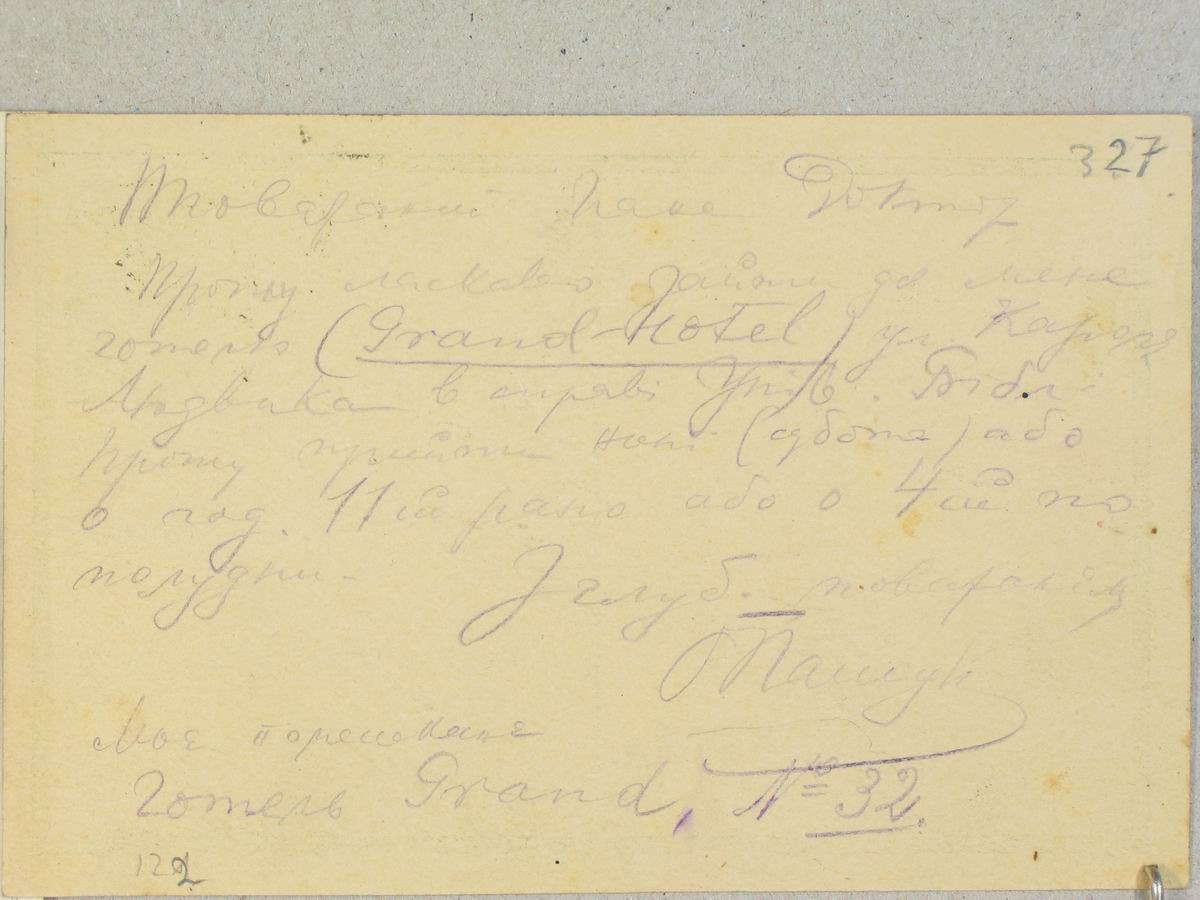 327
Поважаний Пане Доктор
Прошу ласкаво зайти до мене
готель (Grand-Hotel) ул. Кароля
Людвика в справі Унів. Бібл.
Прошу прийти нині (субота) або
о год. 11ій рано або о 4ій по
полудни.
З глуб. поважанєм
Моє помешканє
Готель Grand, № 32.
122